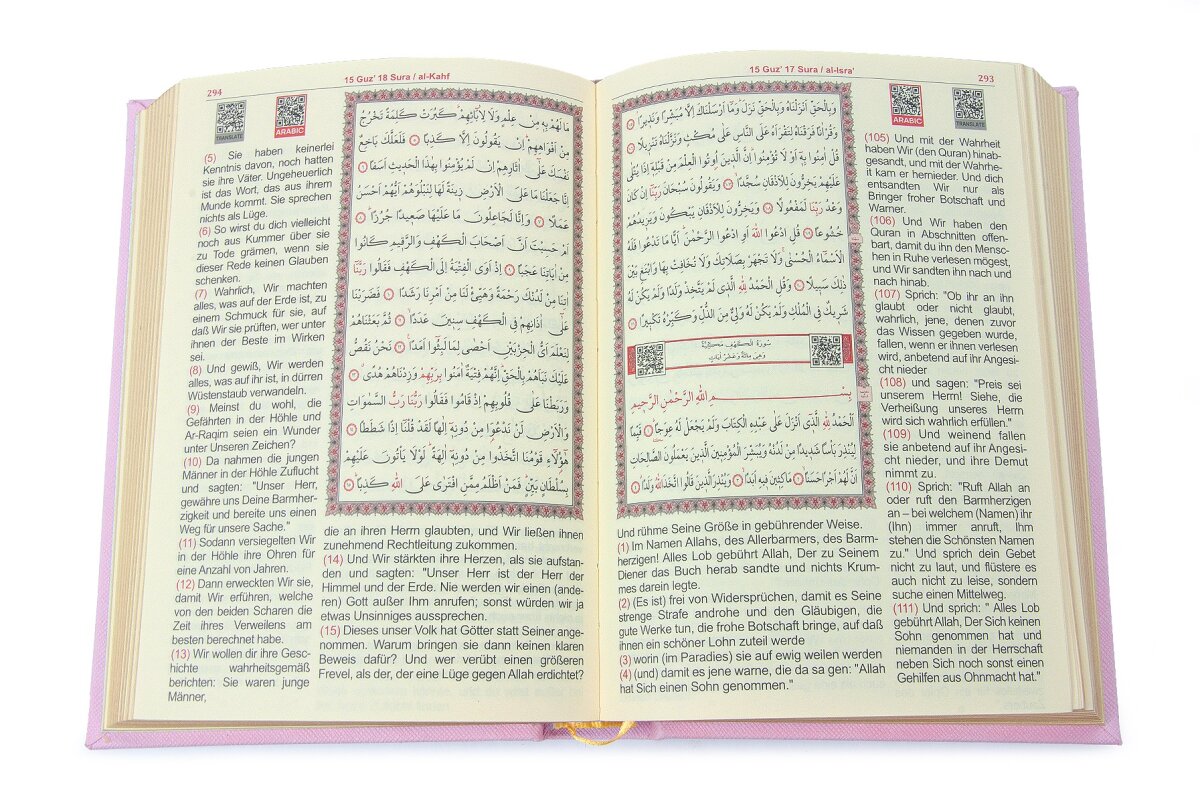 15 Guz' 17 Sura / al-Isra'
293
ARABIC
TRANSLATE
وَبِالْحَقِّ اَنْزَلْنَاهُ وَبِالْحَقِّ نَزَلَ وَمَٓا اَرْسَلْنَاكَ اِلَّا مُبَشِّرًا وَنَذِيرًا
وَقُرْاٰنًا فَرَقْنَاهُ لِتَقْرَاَهُ عَلَى النَّاسِ عَلٰى مُكْثٍ وَنَزَّلْنَاهُ تَنْزِيلًا
قُلْ اٰمِنُوا بِهٖٓ اَوْ لَا تُؤْمِنُوا اِنَّ الَّذِينَ اُوتُوا الْعِلْمَ مِنْ قَبْلِهٖٓ اِذَا يُتْلٰى
عَلَيْهِمْ يَخِرُّونَ لِلْاَذْقَانِ سُجَّدًا وَيَقُولُونَ سُبْحَانَ رَبِّنَٓا اِنْ كَانَ
وَعْدُ رَبِّنَا لَمَفْعُولًا وَيَخِرُّونَ لِلْاَذْقَانِ يَبْكُونَ وَيَزِيدُهُمْ
خُشُوعًا قُلِ ادْعُوا اللّٰهَ اَوِ ادْعُوا الرَّحْمٰنَ اَيًّا مَا تَدْعُوا فَلَهُ
الْاَسْمَٓاءُ الْحُسْنٰى وَلَا تَجْهَرْ بِصَلَاتِكَ وَلَا تُخَافِتْ بِهَا وَابْتَغِ بَيْنَ
ذٰلِكَ سَبِيلًا وَقُلِ الْحَمْدُ لِلّٰهِ الَّذِي لَمْ يَتَّخِذْ وَلَدًا وَلَمْ يَكُنْ لَهُ
شَرِيكٌ فِي الْمُلْكِ وَلَمْ يَكُنْ لَهُ وَلِيٌّ مِنَ الذُّلِّ وَكَبِّرْهُ تَكْبِيرًا
سُورَةُ الْكَهْفِ مَكِّيَّةٌ
وَهِيَ مِائَةٌ وَعَشْرُ اٰيَاتٍ
بِسْمِ اللّٰهِ الرَّحْمٰنِ الرَّحِيمِ
اَلْحَمْدُ لِلّٰهِ الَّذِٓي اَنْزَلَ عَلٰى عَبْدِهِ الْكِتَابَ وَلَمْ يَجْعَلْ لَهُ عِوَجًا قَيِّمًا
لِيُنْذِرَ بَاْسًا شَدِيدًا مِنْ لَدُنْهُ وَيُبَشِّرَ الْمُؤْمِنِينَ الَّذِينَ يَعْمَلُونَ الصَّالِحَاتِ
اَنَّ لَهُمْ اَجْرًا حَسَنًا مَاكِثِينَ فِيهِ اَبَدًا وَيُنْذِرَ الَّذِينَ قَالُوا اتَّخَذَ اللّٰهُ وَلَدًا
(105) Und mit der Wahrheit
haben Wir (den Quran) hinab-
gesandt, und mit der Wahrhe-
it kam er hernieder. Und dich
entsandten Wir nur als
Bringer froher Botschaft und
Warner.
(106) Und Wir haben den
Quran in Abschnitten offen-
bart, damit du ihn den Mensc-
hen in Ruhe verlesen mögest,
und Wir sandten ihn nach und
nach hinab.
(107) Sprich: "Ob ihr an ihn
glaubt oder nicht glaubt,
wahrlich, jene, denen zuvor
das Wissen gegeben wurde,
fallen, wenn er ihnen verlesen
wird, anbetend auf ihr Angesi-
cht nieder
(108) und sagen: "Preis sei
unserem Herrn! Siehe, die
Verheißung unseres Herrn
wird sich wahrlich erfüllen."
(109) Und weinend fallen
sie anbetend auf ihr Angesi-
cht nieder, und ihre Demut
nimmt zu.
(110) Sprich: "Ruft Allah an
oder ruft den Barmherzigen
an – bei welchem (Namen) ihr
(Ihn) immer anruft, Ihm
stehen die Schönsten Namen
zu." Und sprich dein Gebet
nicht zu laut, und flüstere es
auch nicht zu leise, sondern
suche einen Mittelweg.
(111) Und sprich: " Alles Lob
gebührt Allah, Der Sich keinen
Sohn genommen hat und
niemanden in der Herrschaft
neben Sich noch sonst einen
Gehilfen aus Ohnmacht hat."
Und rühme Seine Größe in gebührender Weise.
(1) Im Namen Allahs, des Allerbarmers, des Barm-
herzigen! Alles Lob gebührt Allah, Der zu Seinem
Diener das Buch herab sandte und nichts Krum-
mes darein legte.
(2) (Es ist) frei von Widersprüchen, damit es Seine
strenge Strafe androhe und den Gläubigen, die
gute Werke tun, die frohe Botschaft bringe, auf daß
ihnen ein schöner Lohn zuteil werde
(3) worin (im Paradies) sie auf ewig weilen werden
(4) (und) damit es jene warne, die da sa gen: "Allah
hat Sich einen Sohn genommen."
15 Guz' 18 Sura / al-Kahf
294
TRANSLATE
ARABIC
مَا لَهُمْ بِهٖ مِنْ عِلْمٍ وَلَا لِاٰبَٓائِهِمْ كَبُرَتْ كَلِمَةً تَخْرُجُ
مِنْ اَفْوَاهِهِمْ اِنْ يَقُولُونَ اِلَّا كَذِبًا فَلَعَلَّكَ بَاخِعٌ
نَفْسَكَ عَلٰٓى اٰثَارِهِمْ اِنْ لَمْ يُؤْمِنُوا بِهٰذَا الْحَدِيثِ اَسَفًا
اِنَّا جَعَلْنَا مَا عَلَى الْاَرْضِ زِينَةً لَهَا لِنَبْلُوَهُمْ اَيُّهُمْ اَحْسَنُ
عَمَلًا وَاِنَّا لَجَاعِلُونَ مَا عَلَيْهَا صَعِيدًا جُرُزًا
اَمْ حَسِبْتَ اَنَّ اَصْحَابَ الْكَهْفِ وَالرَّقِيمِ كَانُوا
مِنْ اٰيَاتِنَا عَجَبًا اِذْ اَوَى الْفِتْيَةُ اِلَى الْكَهْفِ فَقَالُوا رَبَّنَٓا
اٰتِنَا مِنْ لَدُنْكَ رَحْمَةً وَهَيِّئْ لَنَا مِنْ اَمْرِنَا رَشَدًا فَضَرَبْنَا
عَلٰٓى اٰذَانِهِمْ فِي الْكَهْفِ سِنِينَ عَدَدًا ثُمَّ بَعَثْنَاهُمْ
لِنَعْلَمَ اَيُّ الْحِزْبَيْنِ اَحْصٰى لِمَا لَبِثُٓوا اَمَدًا نَحْنُ نَقُصُّ
عَلَيْكَ نَبَاَهُمْ بِالْحَقِّ اِنَّهُمْ فِتْيَةٌ اٰمَنُوا بِرَبِّهِمْ وَزِدْنَاهُمْ هُدًى
وَرَبَطْنَا عَلٰى قُلُوبِهِمْ اِذْ قَامُوا فَقَالُوا رَبُّنَا رَبُّ السَّمٰوَاتِ
وَالْاَرْضِ لَنْ نَدْعُوَا مِنْ دُونِهٖٓ اِلٰهًا لَقَدْ قُلْنَٓا اِذًا شَطَطًا
هٰٓؤُلَٓاءِ قَوْمُنَا اتَّخَذُوا مِنْ دُونِهٖٓ اٰلِهَةً لَوْلَا يَاْتُونَ عَلَيْهِمْ
بِسُلْطَانٍ بَيِّنٍ فَمَنْ اَظْلَمُ مِمَّنِ افْتَرٰى عَلَى اللّٰهِ كَذِبًا
(5) Sie haben keinerlei
Kenntnis davon, noch hatten
sie ihre Väter. Ungeheuerlich
ist das Wort, das aus ihrem
Munde kommt. Sie sprechen
nichts als Lüge.
(6) So wirst du dich vielleicht
noch aus Kummer über sie
zu Tode grämen, wenn sie
dieser Rede keinen Glauben
schenken.
(7) Wahrlich, Wir machten
alles, was auf der Erde ist, zu
einem Schmuck für sie, auf
daß Wir sie prüften, wer unter
ihnen der Beste im Wirken
sei.
(8) Und gewiß, Wir werden
alles, was auf ihr ist, in dürren
Wüstenstaub verwandeln.
(9) Meinst du wohl, die
Gefährten in der Höhle und
Ar-Raqim seien ein Wunder
unter Unseren Zeichen?
(10) Da nahmen die jungen
Männer in der Höhle Zuflucht
und sagten: "Unser Herr,
gewähre uns Deine Barmher-
zigkeit und bereite uns einen
Weg für unsere Sache."
(11) Sodann versiegelten Wir
in der Höhle ihre Ohren für
eine Anzahl von Jahren.
(12) Dann erweckten Wir sie,
damit Wir erführen, welche
von den beiden Scharen die
Zeit ihres Verweilens am
besten berechnet habe.
(13) Wir wollen dir ihre Gesc-
hichte wahrheitsgemäß
berichten: Sie waren junge
Männer,
die an ihren Herrn glaubten, und Wir ließen ihnen
zunehmend Rechtleitung zukommen.
(14) Und Wir stärkten ihre Herzen, als sie aufstan-
den und sagten: "Unser Herr ist der Herr der
Himmel und der Erde. Nie werden wir einen (ande-
ren) Gott außer Ihm anrufen; sonst würden wir ja
etwas Unsinniges aussprechen.
(15) Dieses unser Volk hat Götter statt Seiner ange-
nommen. Warum bringen sie dann keinen klaren
Beweis dafür? Und wer verübt einen größeren
Frevel, als der, der eine Lüge gegen Allah erdichtet?